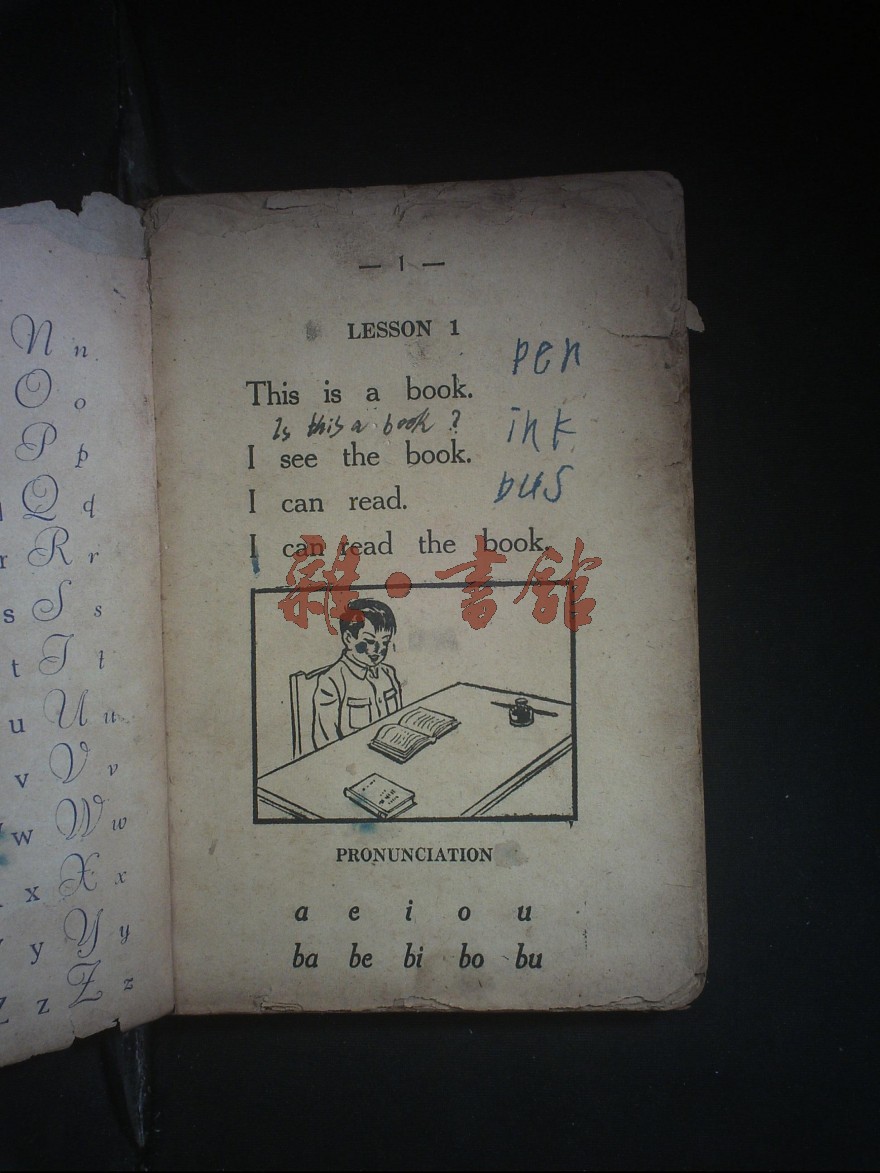 N n
O o
P p
Q q
r R r
s S s
t T t
u U u
v V v
w W w
x X x
y Y y
Z z Z z
— 1 —
LESSON 1
pen
This is a book.
Is this a book ?
ink
I see the book.
bus
I can read.
I can read the book.
雜·書館
PRONUNCIATION
a e i o u
ba be bi bo bu